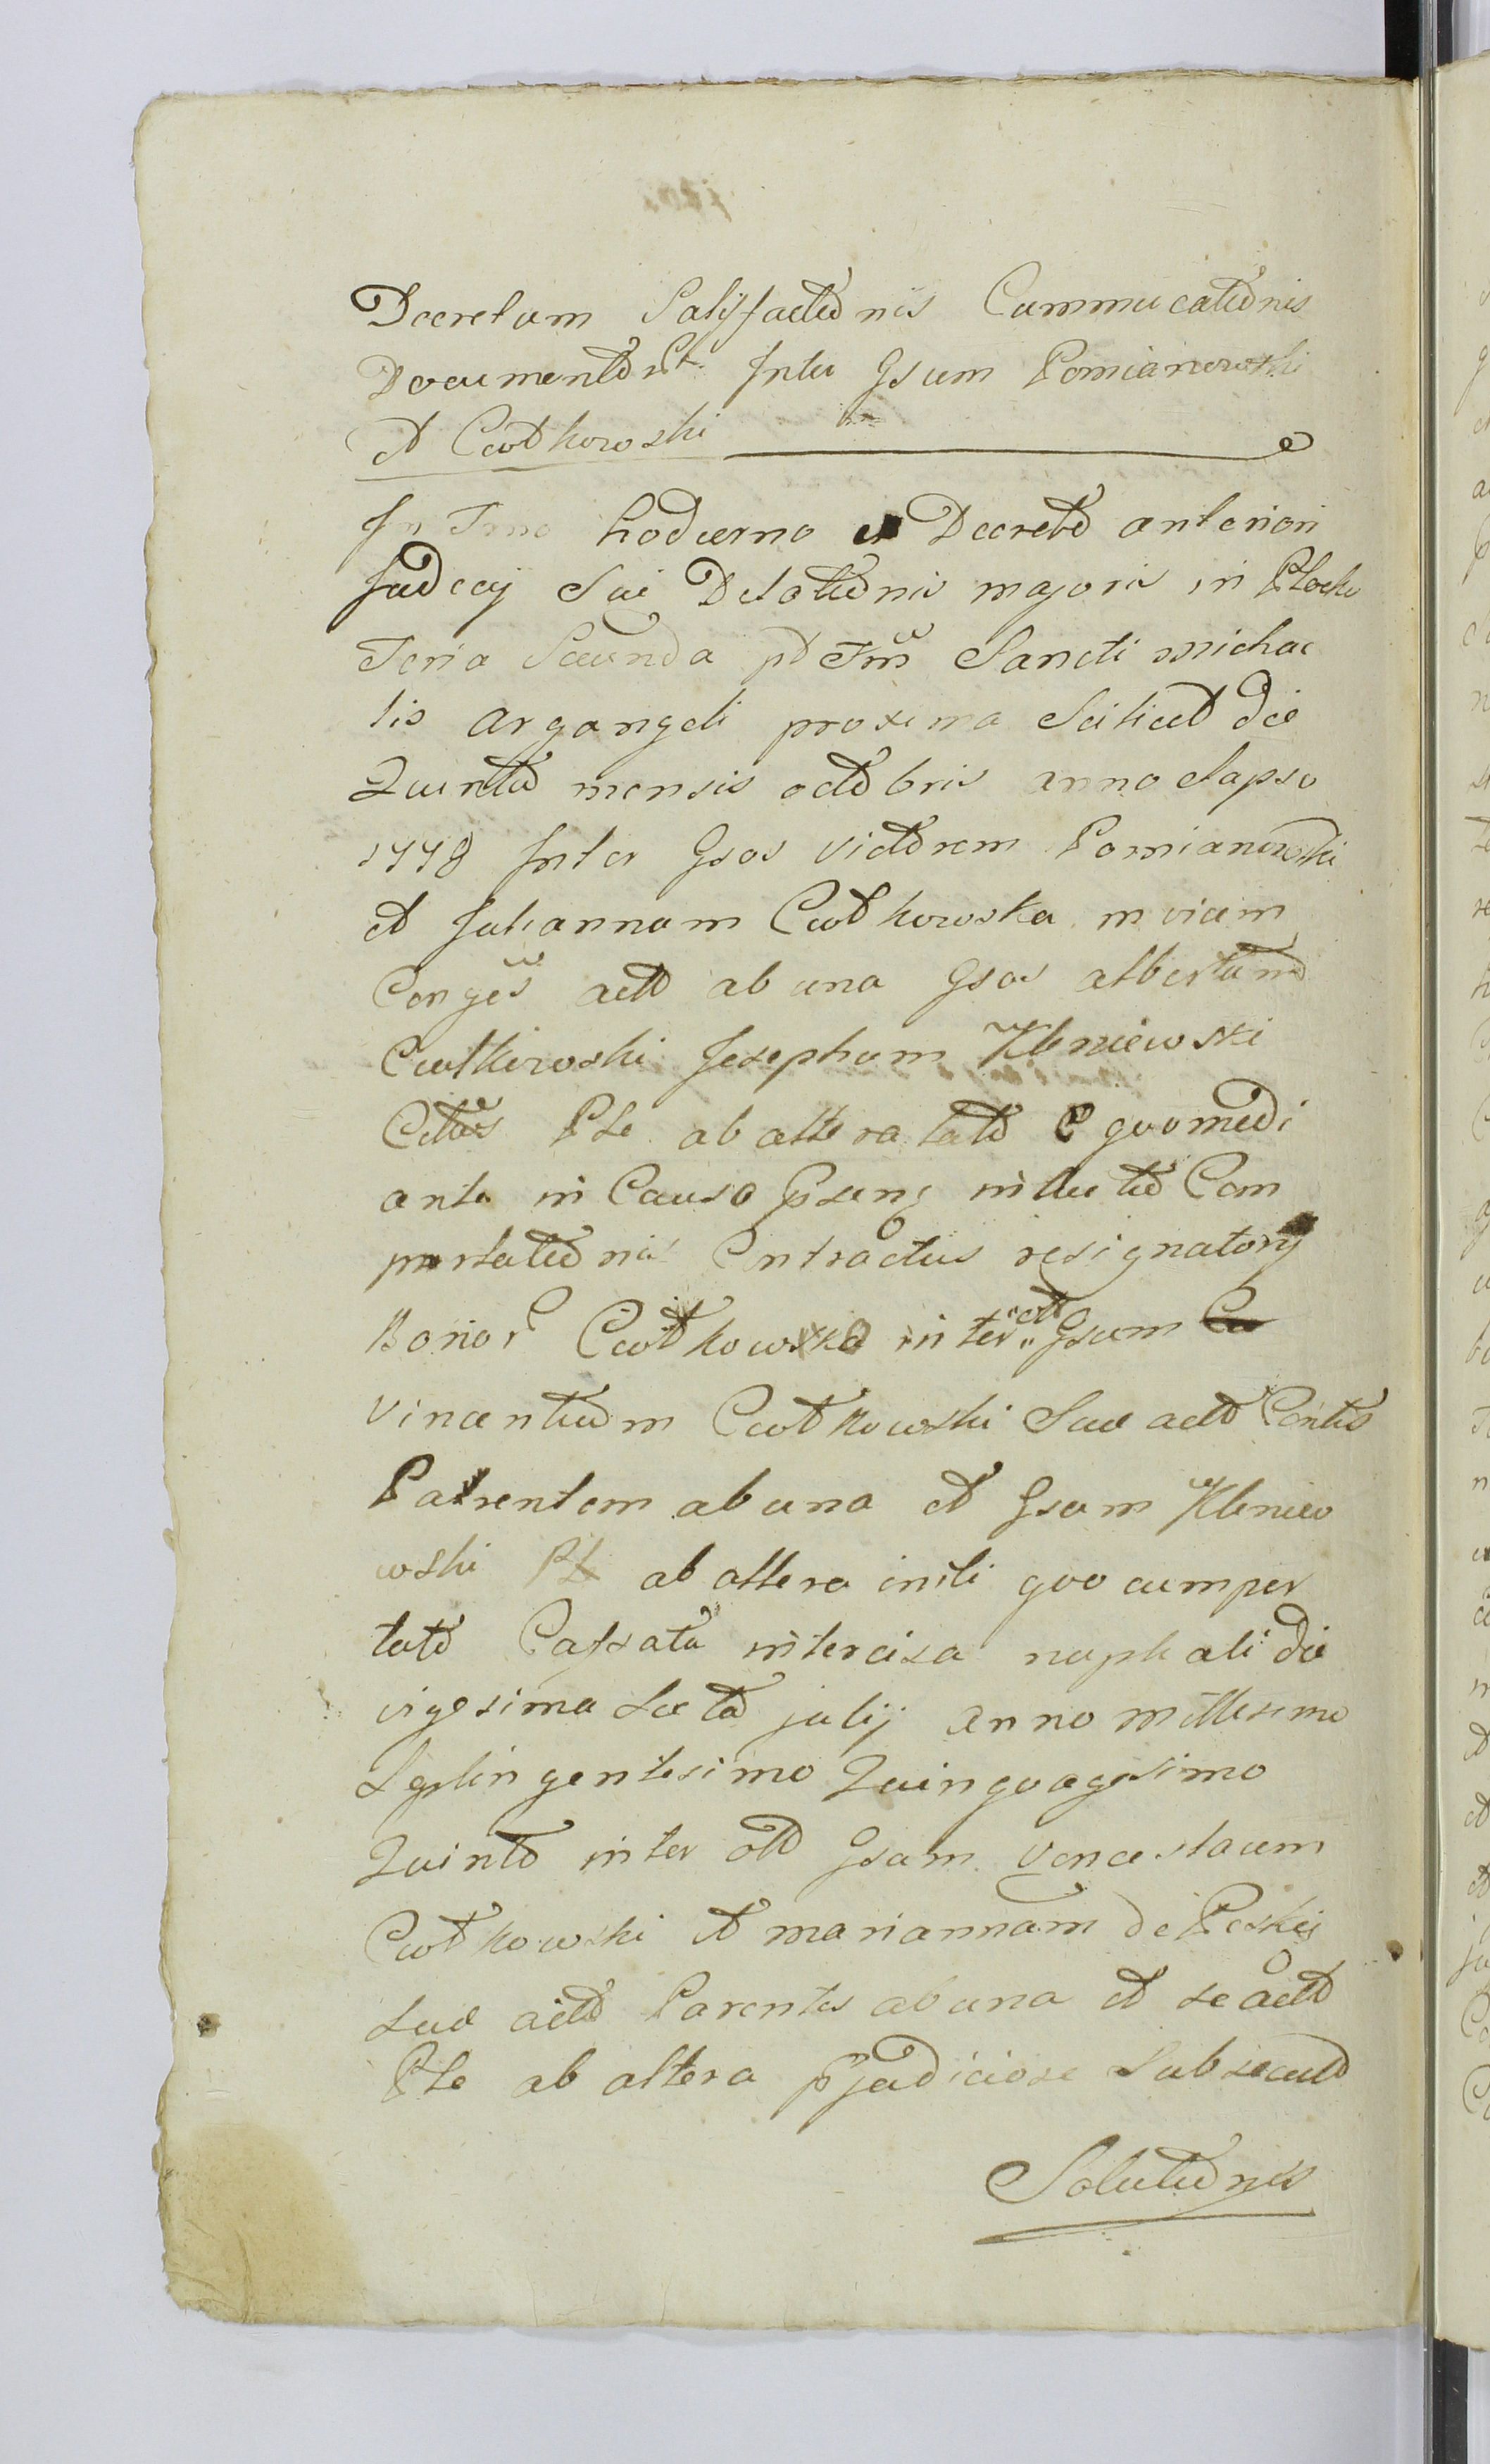 Decretum Satisfactionis Communicationis
Documentor Inter Gsum Pomianowski
et Ciotkowski
In Tmno hodierno ex Decreto anteriori
Judicij Sui Dilationis majoris in Plocko
Feria Secunda pt Fm Sancti Michae
lis argangeli proxima Scilicet die
Quinta mensis octobris anno elapso
1778 Inter Gsos Victorem Pomianowski
et Juliannam Ciotkowska invicem
Conges act ab una Gsos albertum
Ciotkowski Josephum Kleniewski
Citus Pte ab altera lato E quo medi
ante in Causa Psenq intuitu Com
portationis Contractus resignatorij
Bonor Ciotkowska inter olt Gsum
Vincentium Ciotkowski Suae act Contis
Patrentem ab una et Gsum Kleniew
wski Pt ab altera initi quo comper
tato Cassata intercisa nuptiali die
vigesima sexta julij anno millesimo
Septingentesimo Quinquagesimo
Quinto inter olt Gsum Venceslaum
Ciotkowski et mariannam de Peskis
suae act Parentes ab una et se act
Pte ab altera pjudiciose Subsecuto
Solutionis